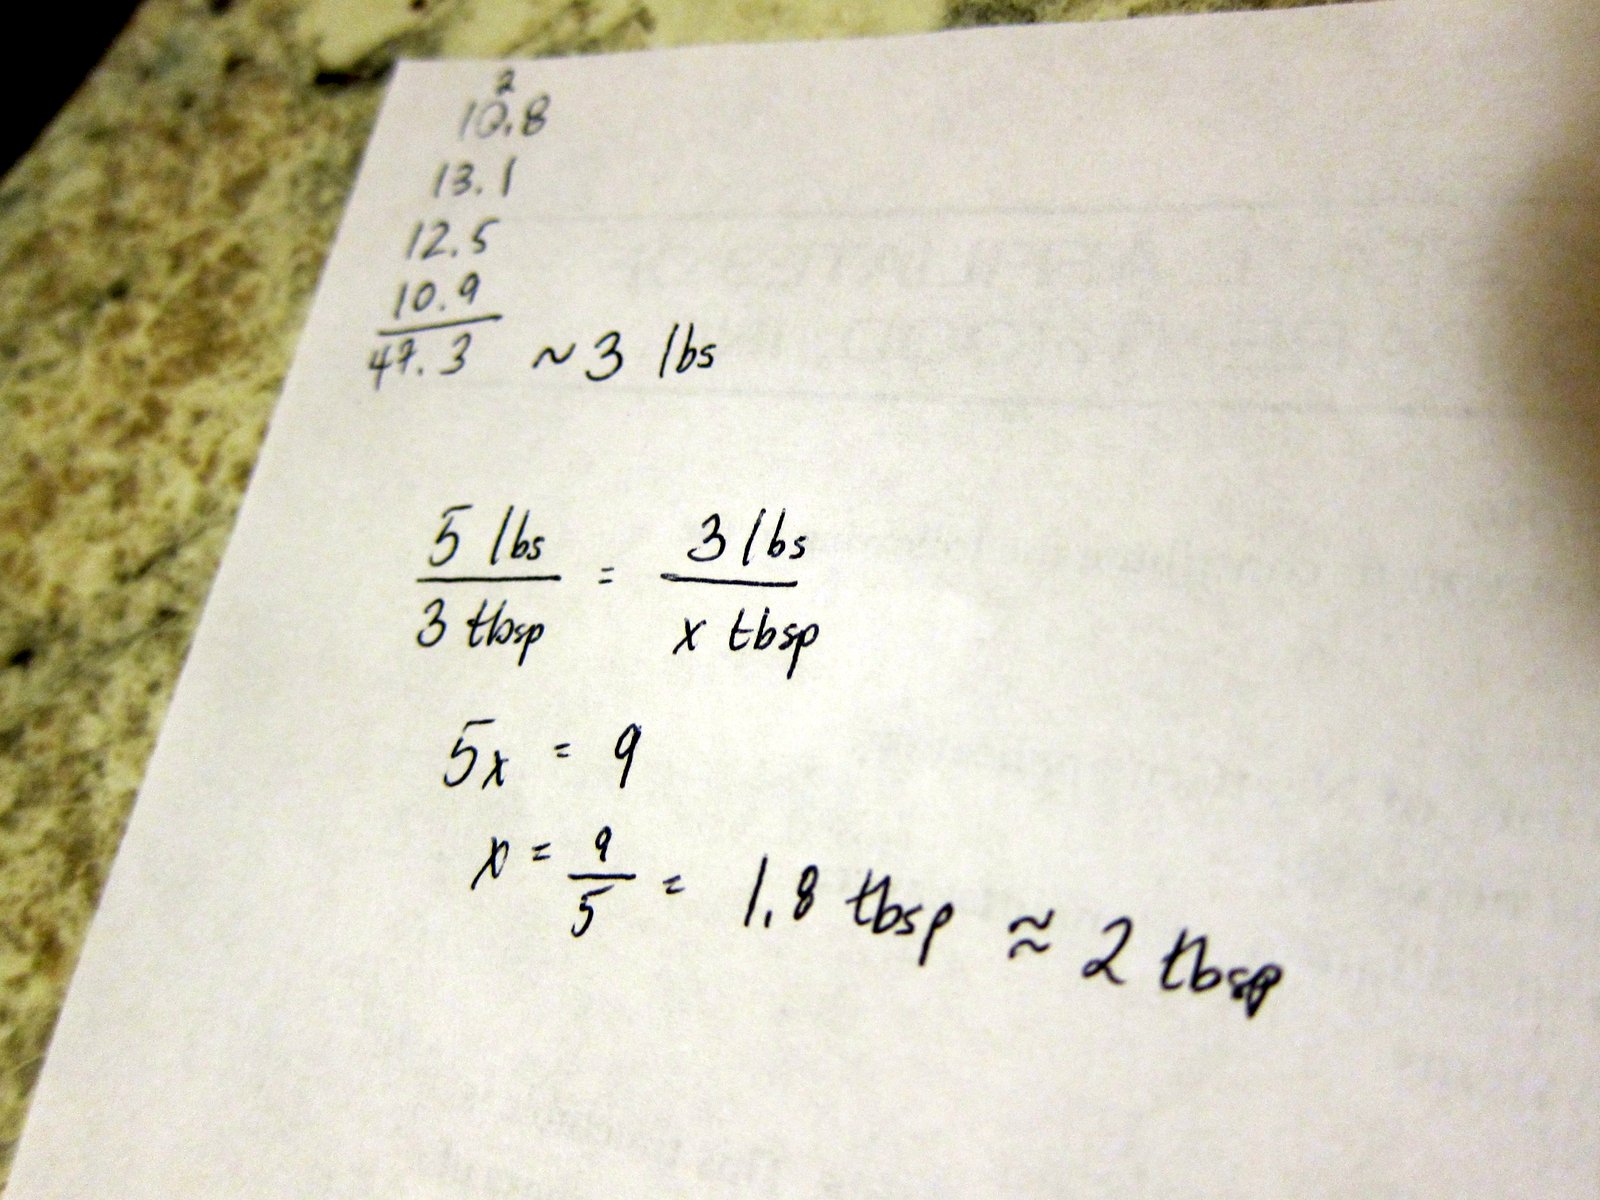 2
10.8
13.1
12.5
10.9
47.3 ~3 lbs
5 lbs / 3 tbsp = 3 lbs / x tbsp
5x = 9
x = 9/5 = 1.8 tbsp ≈ 2 tbsp